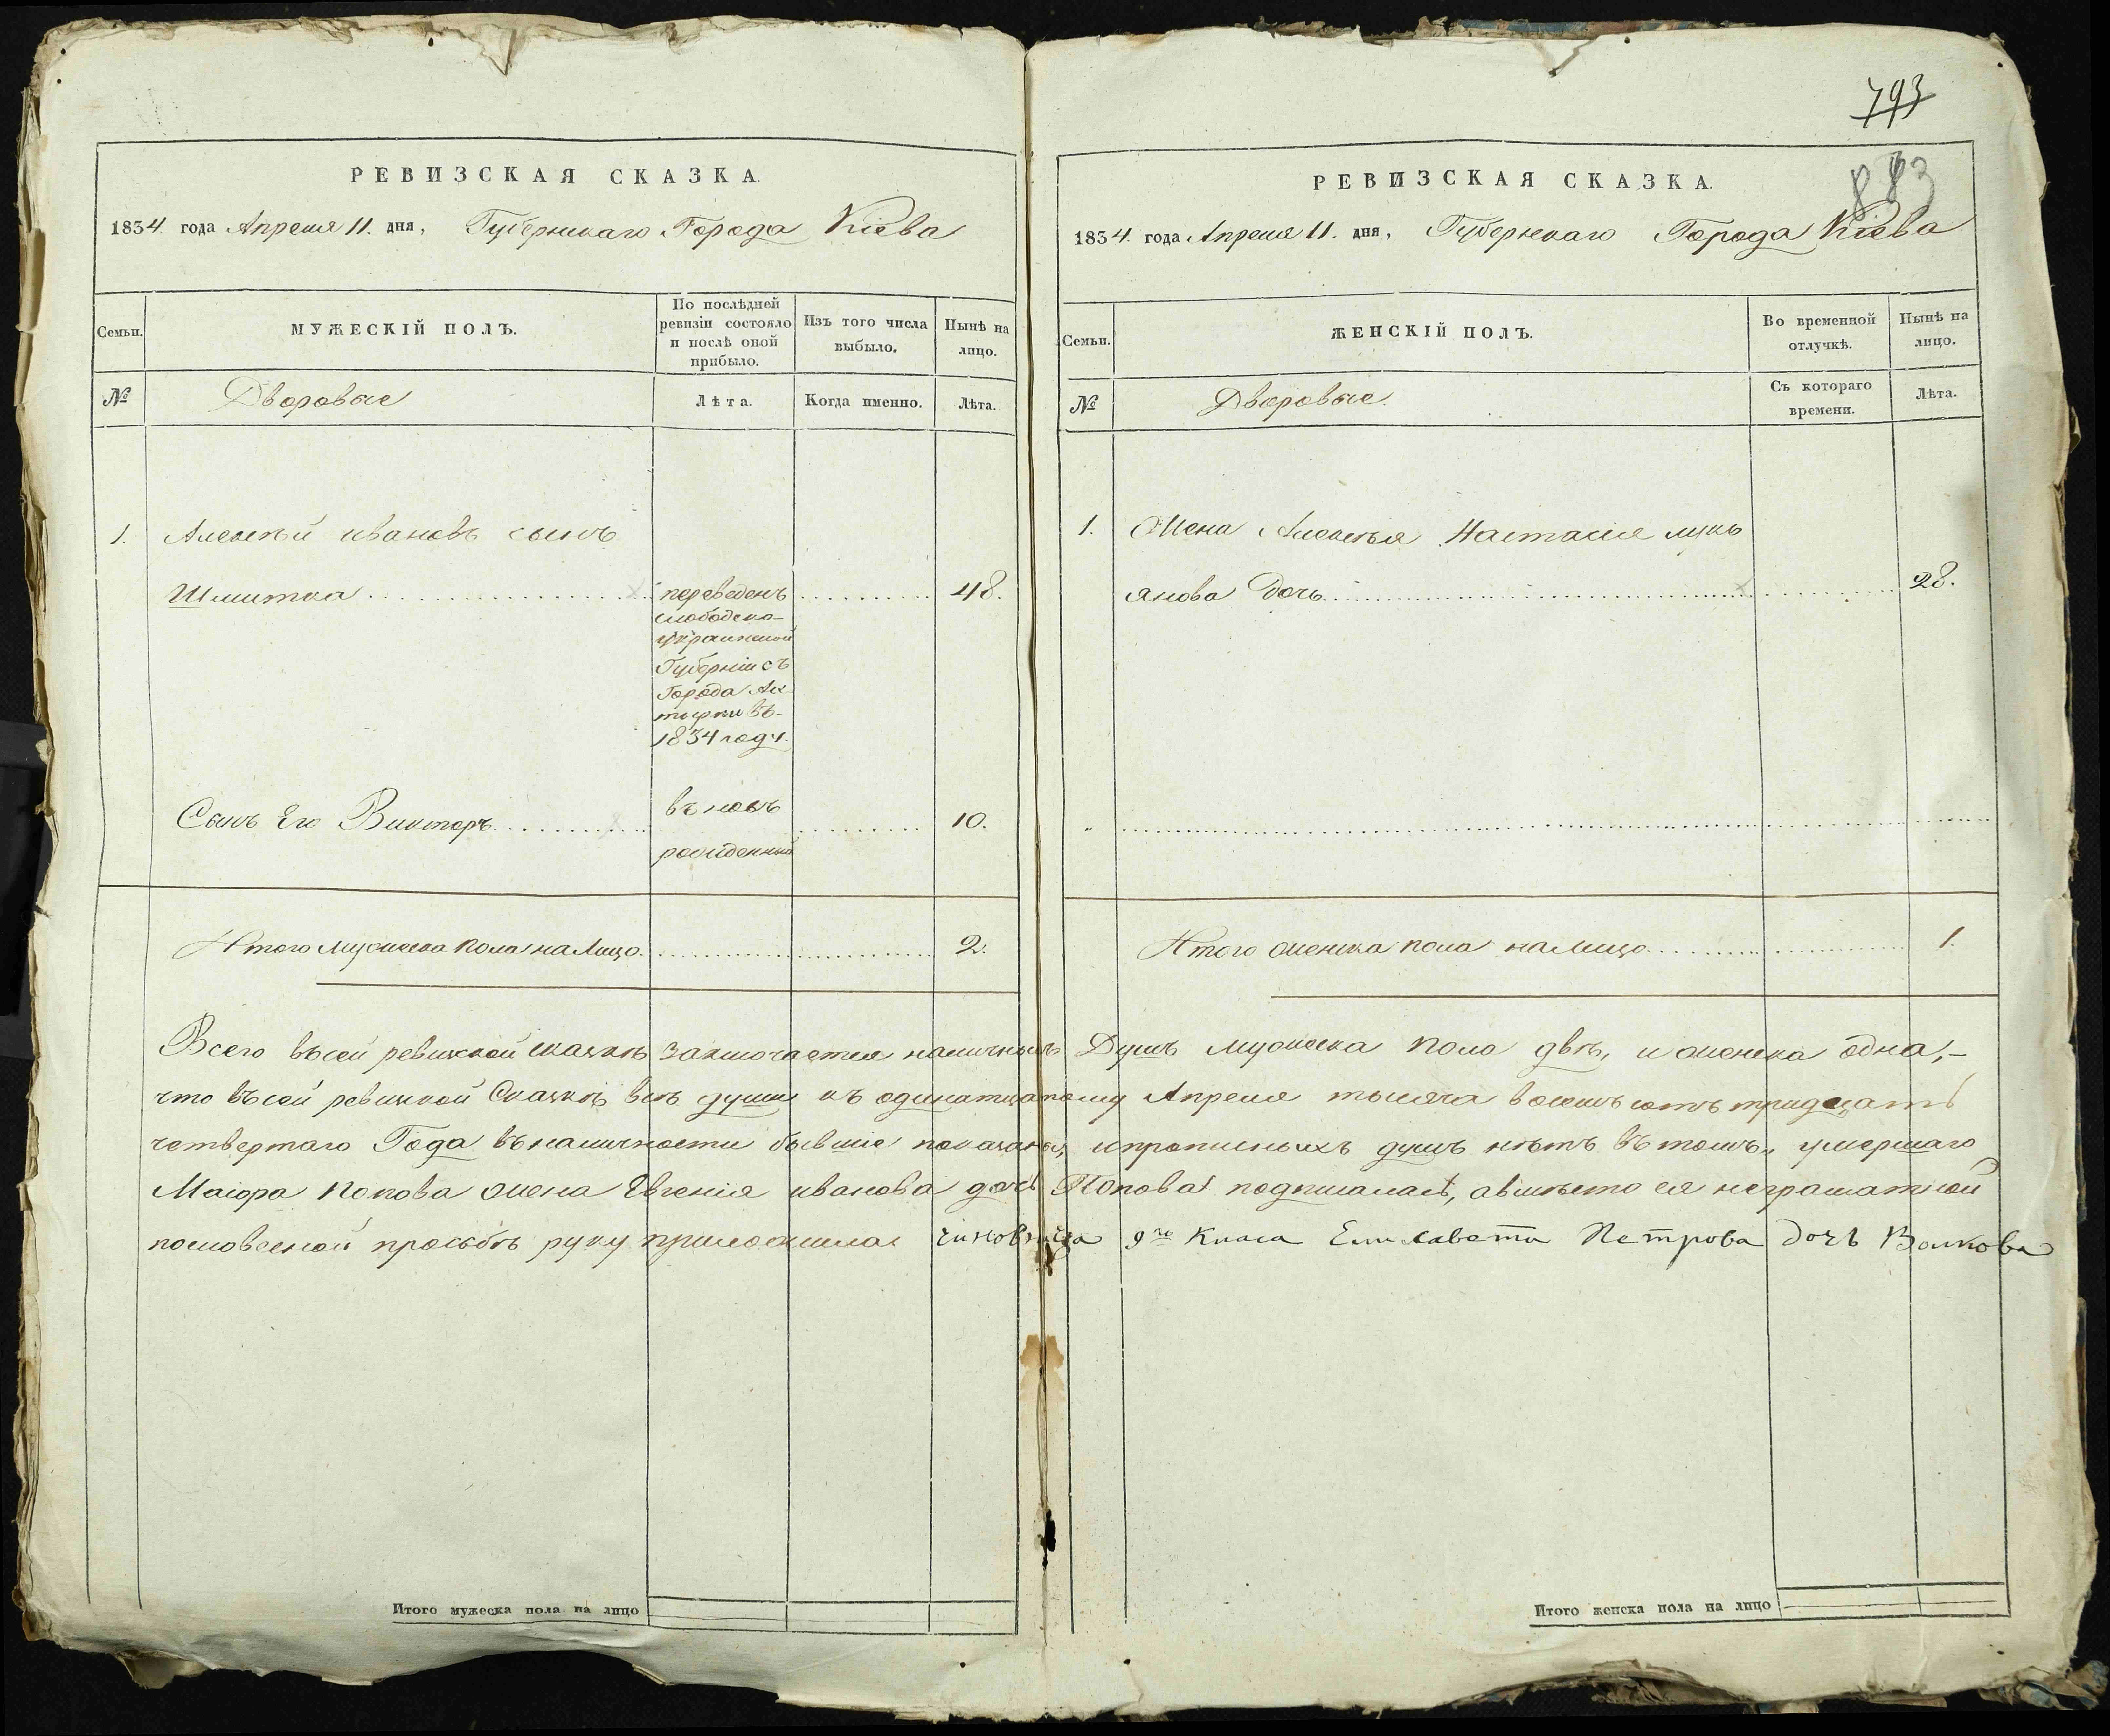 793
883
РЕВИЗСКАЯ СКАЗКА.
1834. года Апреля 11. дня, Губернскаго Города Кіева
Семьи.
МУЖЕСКІЙ ПОЛЪ.
По послѣдней ревизіи состояло и послѣ оной прибыло.
Изъ того числа выбыло.
Нынѣ на лицо.
№
Дворовые
Лѣта.
Когда именно.
Лѣта.
1. Алексѣй ивановъ сынъ
Шмитка
переведенъ
слободско-
украинской
Губерніи съ
Города Ах
тырки въ-
1834 году.
48.
Сынъ Его Викторъ
въ новь
рожденный
10.
Итого мужеска пола на Лицо. 2.
РЕВИЗСКАЯ СКАЗКА.
1834. года Апреля 11. дня, Губернскаго Города Кіева
Семьи.
ЖЕНСКІЙ ПОЛЪ.
Во временной отлучкѣ.
Нынѣ на лицо.
№
Дворовые.
Съ котораго времени.
Лѣта.
1. Жена Алексѣя Настасия лукь
янова Дочь 28.
Итого женска пола на Лицо 1.
Всего въ сей ревизской сказкѣ заключается наличныхъ Душъ мужеска пола двѣ, и женска одна,-
что въ сей ревизкой Сказкѣ всѣ души къ одинатцатому Апреля тысяча восемъ сотъ тридцать
четвертаго Года въ наличности бывшіе показаны, и прописныхъ душъ нѣтъ въ томъ, умершаго
Маіора Попова жена Евгенія иванова дочь Попова подписалась, а вмѣсто ея неграматной
по словесной прозьбѣ руку приложила чиновница 9го Класа Елисавета Петрова дочь Волкова
Итого мужеска пола на лицо
Итого женска пола на лицо